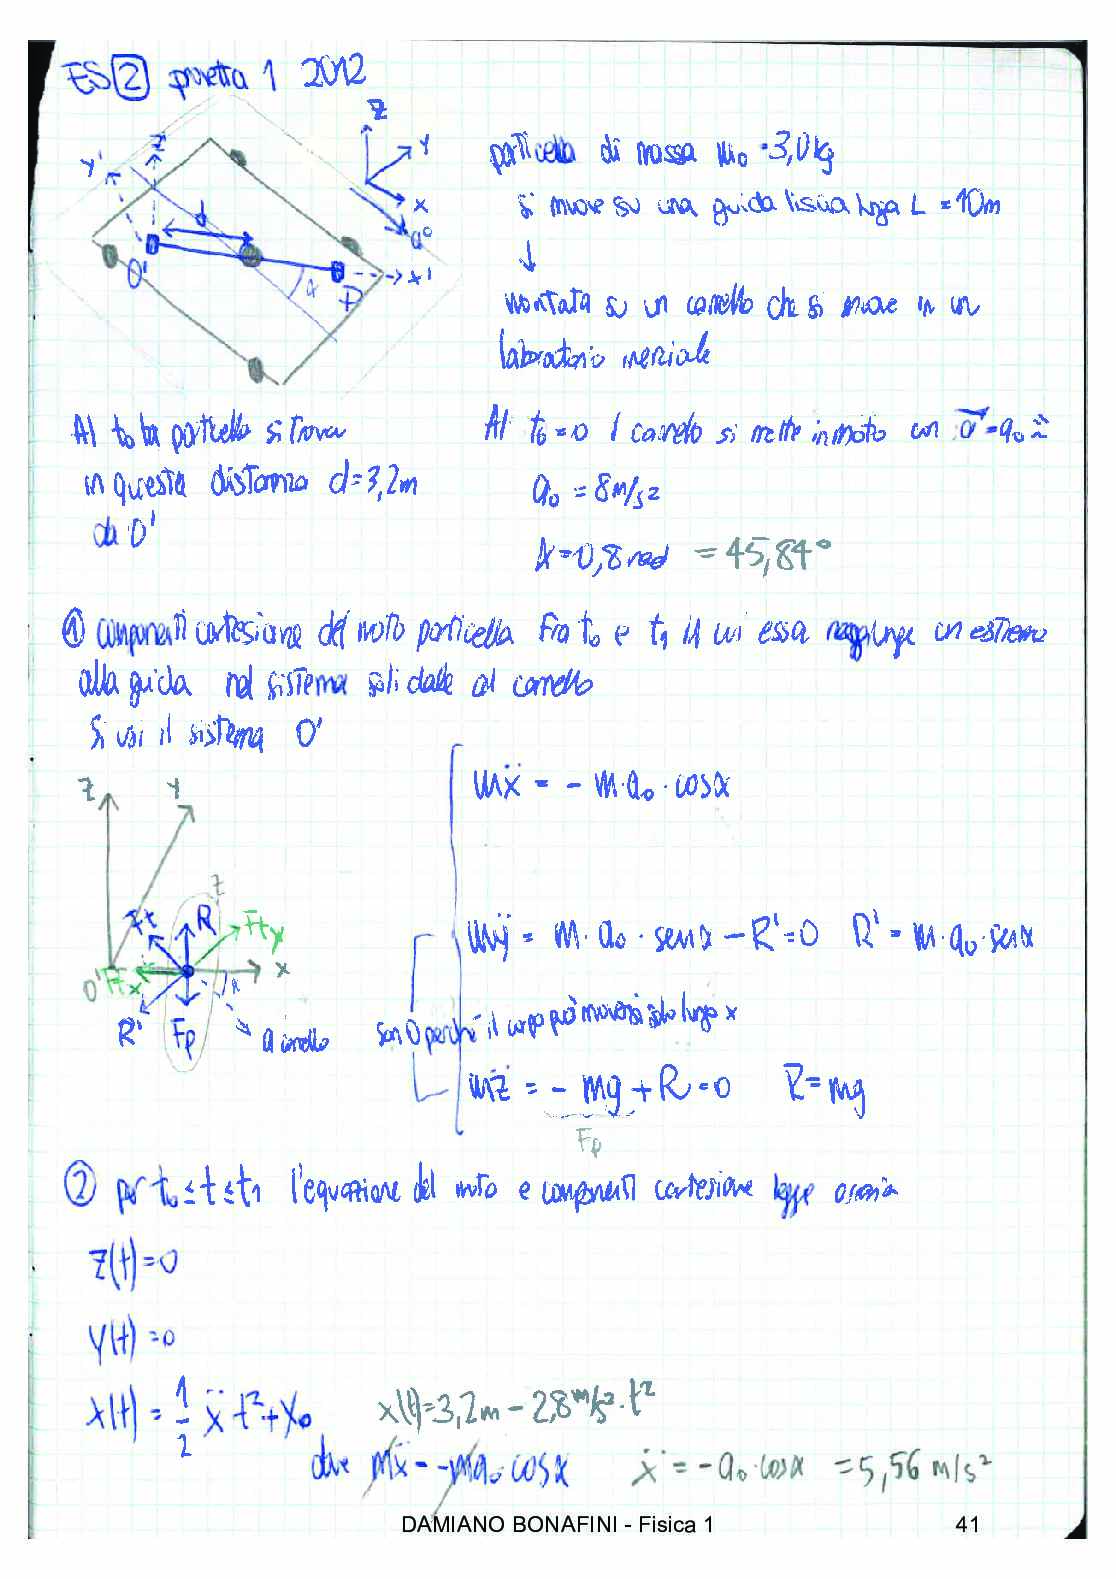 ES 2 provetta 1 2012
Z
Y
X
a⁰
Y'
Z
d
O'
α
P
X'
particella di massa m₀ = 3,0 kg
si muove su una guida liscia lunga L = 10m
↓
montata su un carrello che si muove in un
laboratorio inerziale
Al t₀ la particella si trova
in questa distanza d = 3,2m
da O'
Al t₀ = 0 il carrello si mette in moto con a⃗ = a₀
a₀ = 8 m/s²
α = 0,8 rad = 45,84°
① componenti cartesiane del moto particella fra t₀ e t₁ in cui essa raggiunge un estremo
alla guida nel sistema solidale al carrello
Si usi il sistema O'
Z
Y
Z
Ft
R
Fty
O'
Ftx
X
α
R'
Fp
a carrello
mẍ = - m·a₀·cosα
mÿ = m·a₀·senα - R' = 0 R' = m·a₀·senα
son 0 perché il corpo può muoversi solo lungo x
mz̈ = - mg + R = 0 R = mg
Fp
② per t₀ ≤ t ≤ t₁ l'equazione del moto e componenti cartesiane legge oraria
Z(t) = 0
Y(t) = 0
X(t) = 1/2 ẍ t² + X₀ x(t) = 3,2m - 2,8 m/s² · t²
dove mẍ = -ma₀ cosα ẍ = -a₀·cosα = 5,56 m/s²
DAMIANO BONAFINI - Fisica 1 41